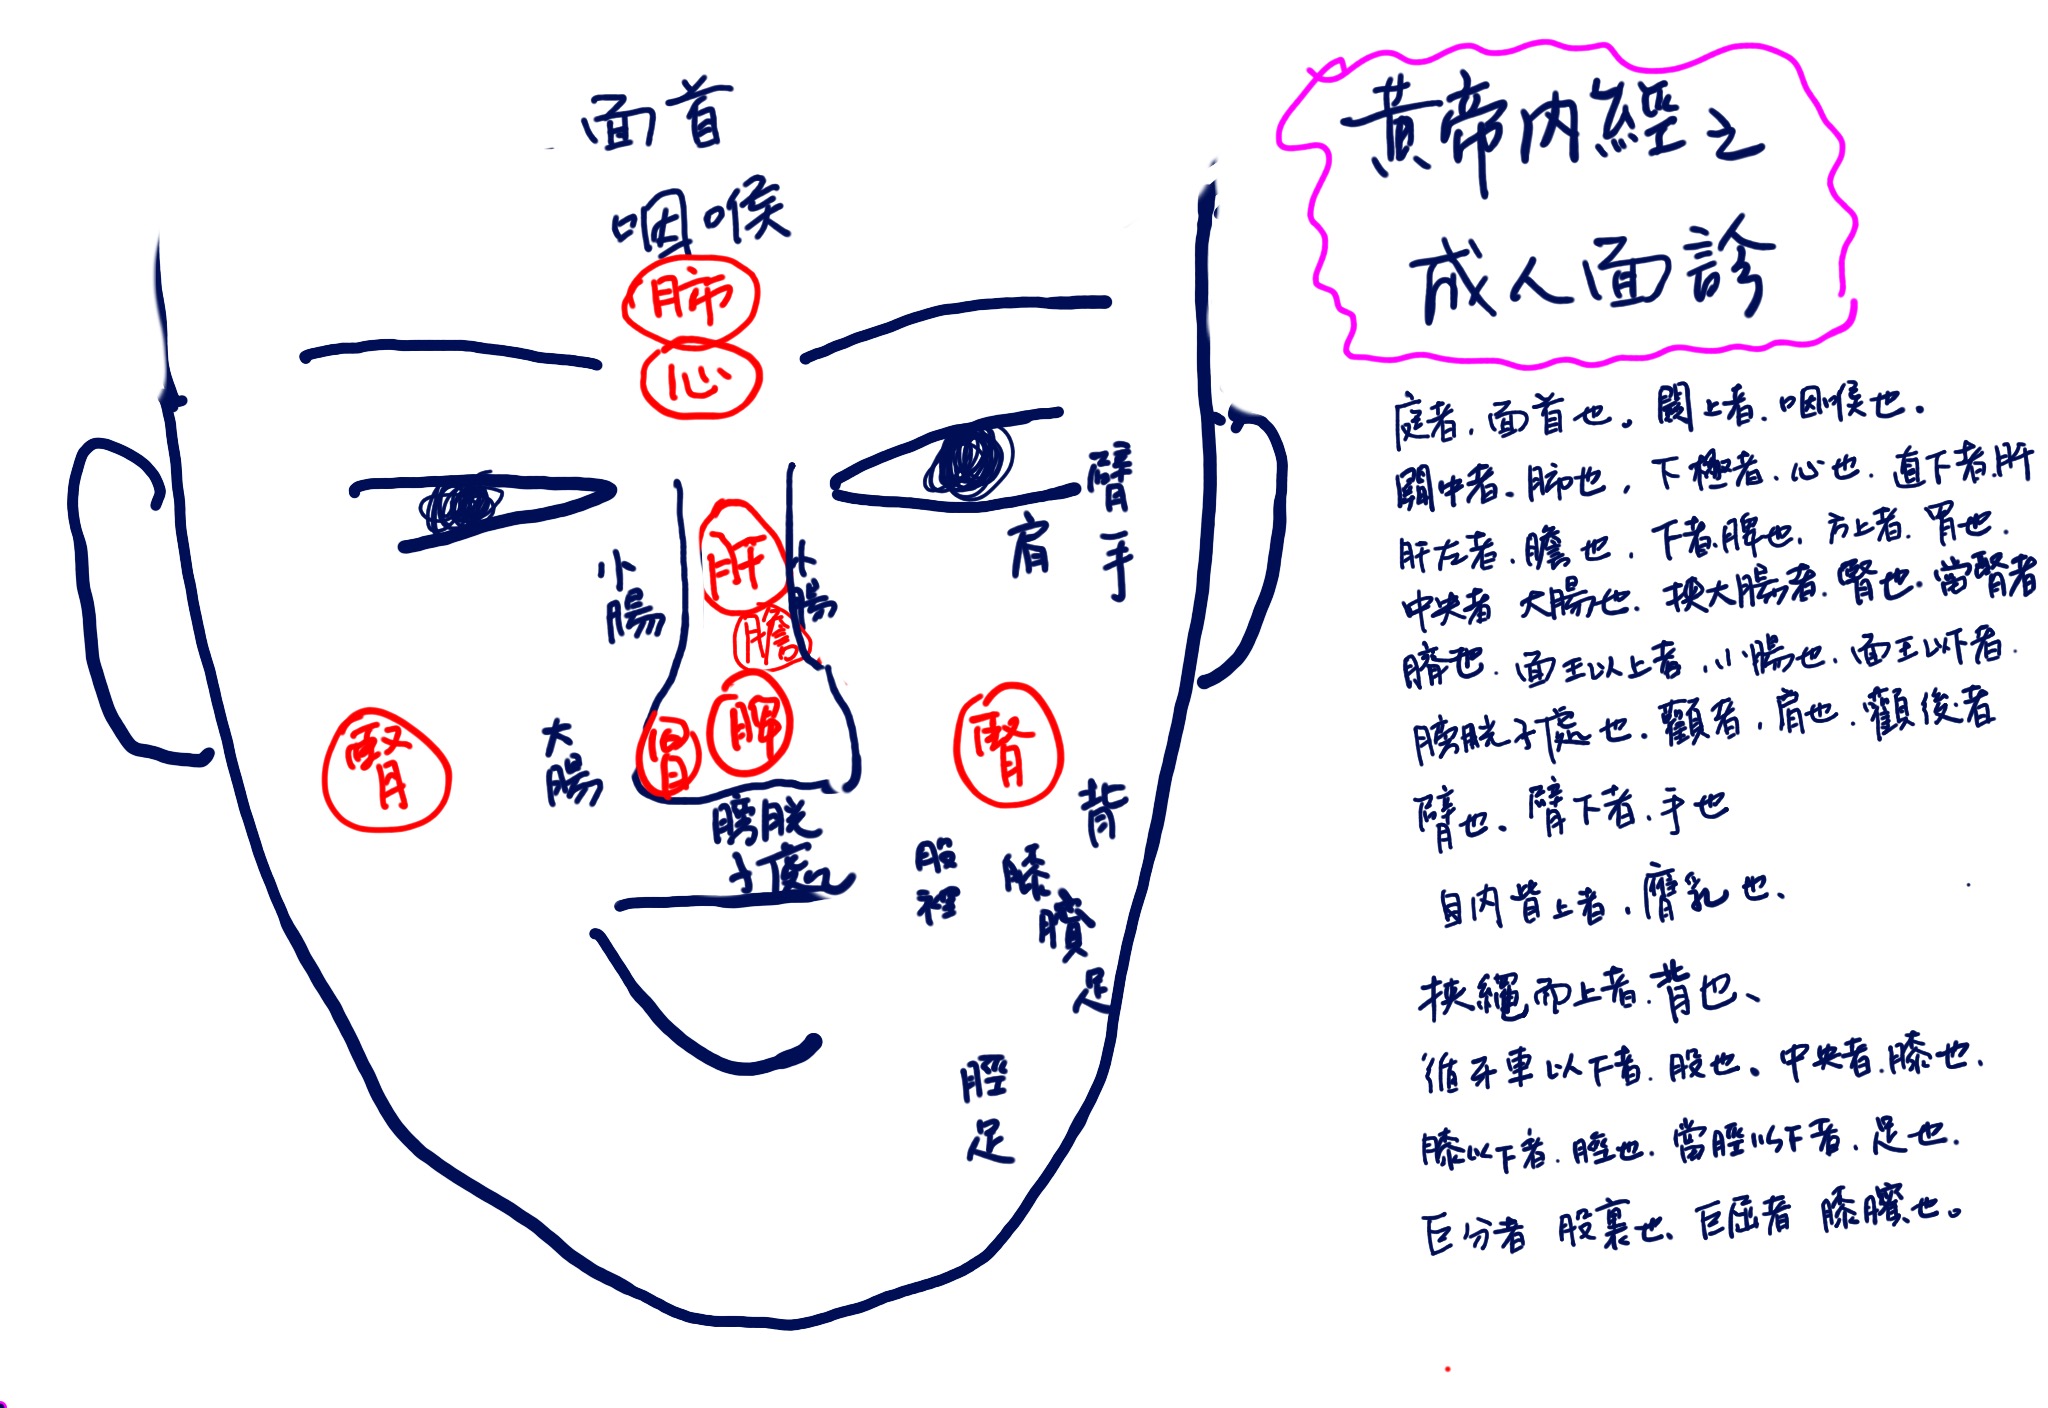 面首
咽喉
肺
心
肝
膽
脾
胃
小腸
小腸
大腸
腎
腎
膀胱
子處
臂
手
肩
背
股裡
膝臏
足
脛
足
黃帝內經之
成人面診
庭者、面首也。闕上者、咽喉也。
闕中者、肺也，下極者、心也、直下者、肝
肝左者、膽也，下者、脾也，方上者、胃也、
中央者 大腸也、挾大腸者、腎也、當腎者
臍也、面王以上者、小腸也、面王以下者、
膀胱子處也、顴者，肩也、顴後者
臂也、臂下者、手也
目內眥上者，膺乳也、
挾繩而上者、背也、
循牙車以下者、股也。中央者、膝也、
膝以下者、脛也、當脛以下者、足也、
巨分者 股裏也、巨屈者 膝臏也。